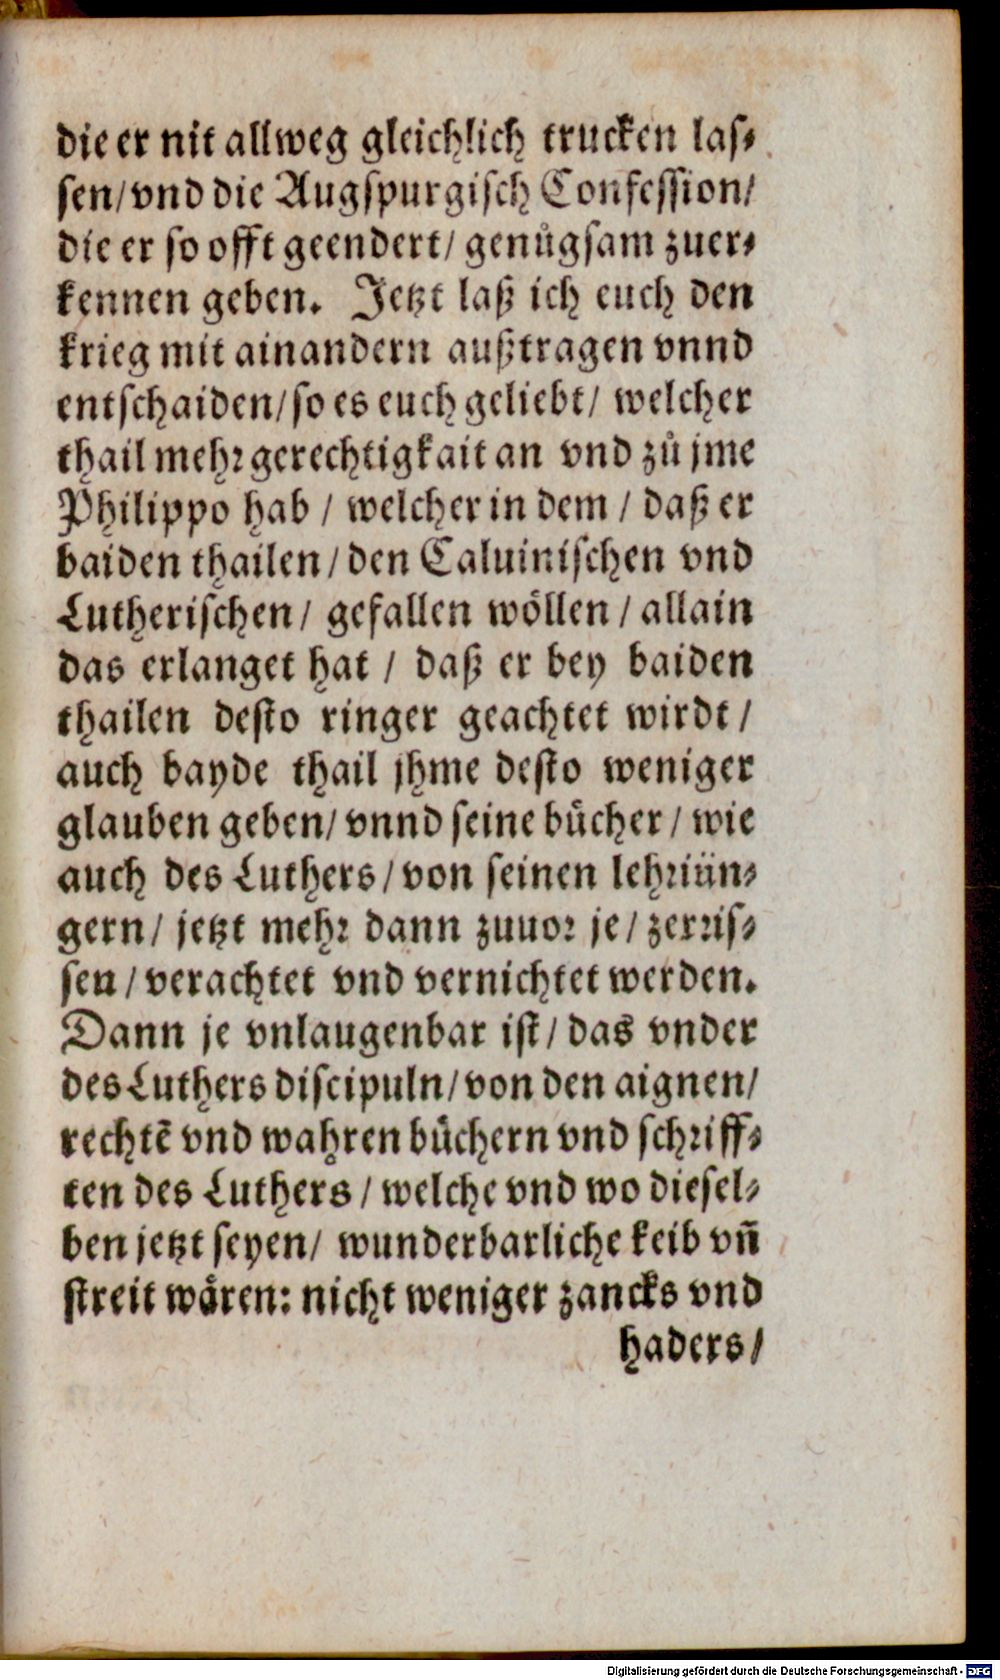 die er nit allweg gleichlich trucken las⸗
sen/ vnd die Augspurgisch Confession/
die er so offt geendert/ genůgsam zuer⸗
kennen geben. Jetzt laß ich euch den
krieg mit ainandern außtragen vnnd
entschaiden/ so es euch geliebt/ welcher
thail mehr gerechtigkait an vnd zů jme
Philippo hab / welcher in dem / daß er
baiden thailen / den Caluinischen vnd
Lutherischen/ gefallen wöllen / allain
das erlanget hat / daß er bey baiden
thailen desto ringer geachtet wirdt /
auch bayde thail jhme desto weniger
glauben geben/ vnnd seine bůcher / wie
auch des Luthers / von seinen lehriün⸗
gern / jetzt mehr dann zuuor je / zerris⸗
sen / verachtet vnd vernichtet werden.
Dann je vnlaugenbar ist / das vnder
des Luthers discipuln / von den aignen/
rechtē vnd wahren bůchern vnd schriff⸗
ten des Luthers / welche vnd wo diesel⸗
ben jetzt seyen/ wunderbarliche keib vn̄
streit wären: nicht weniger zancks vnd
haders /
Digitalisierung gefördert durch die Deutsche Forschungsgemeinschaft - DFG